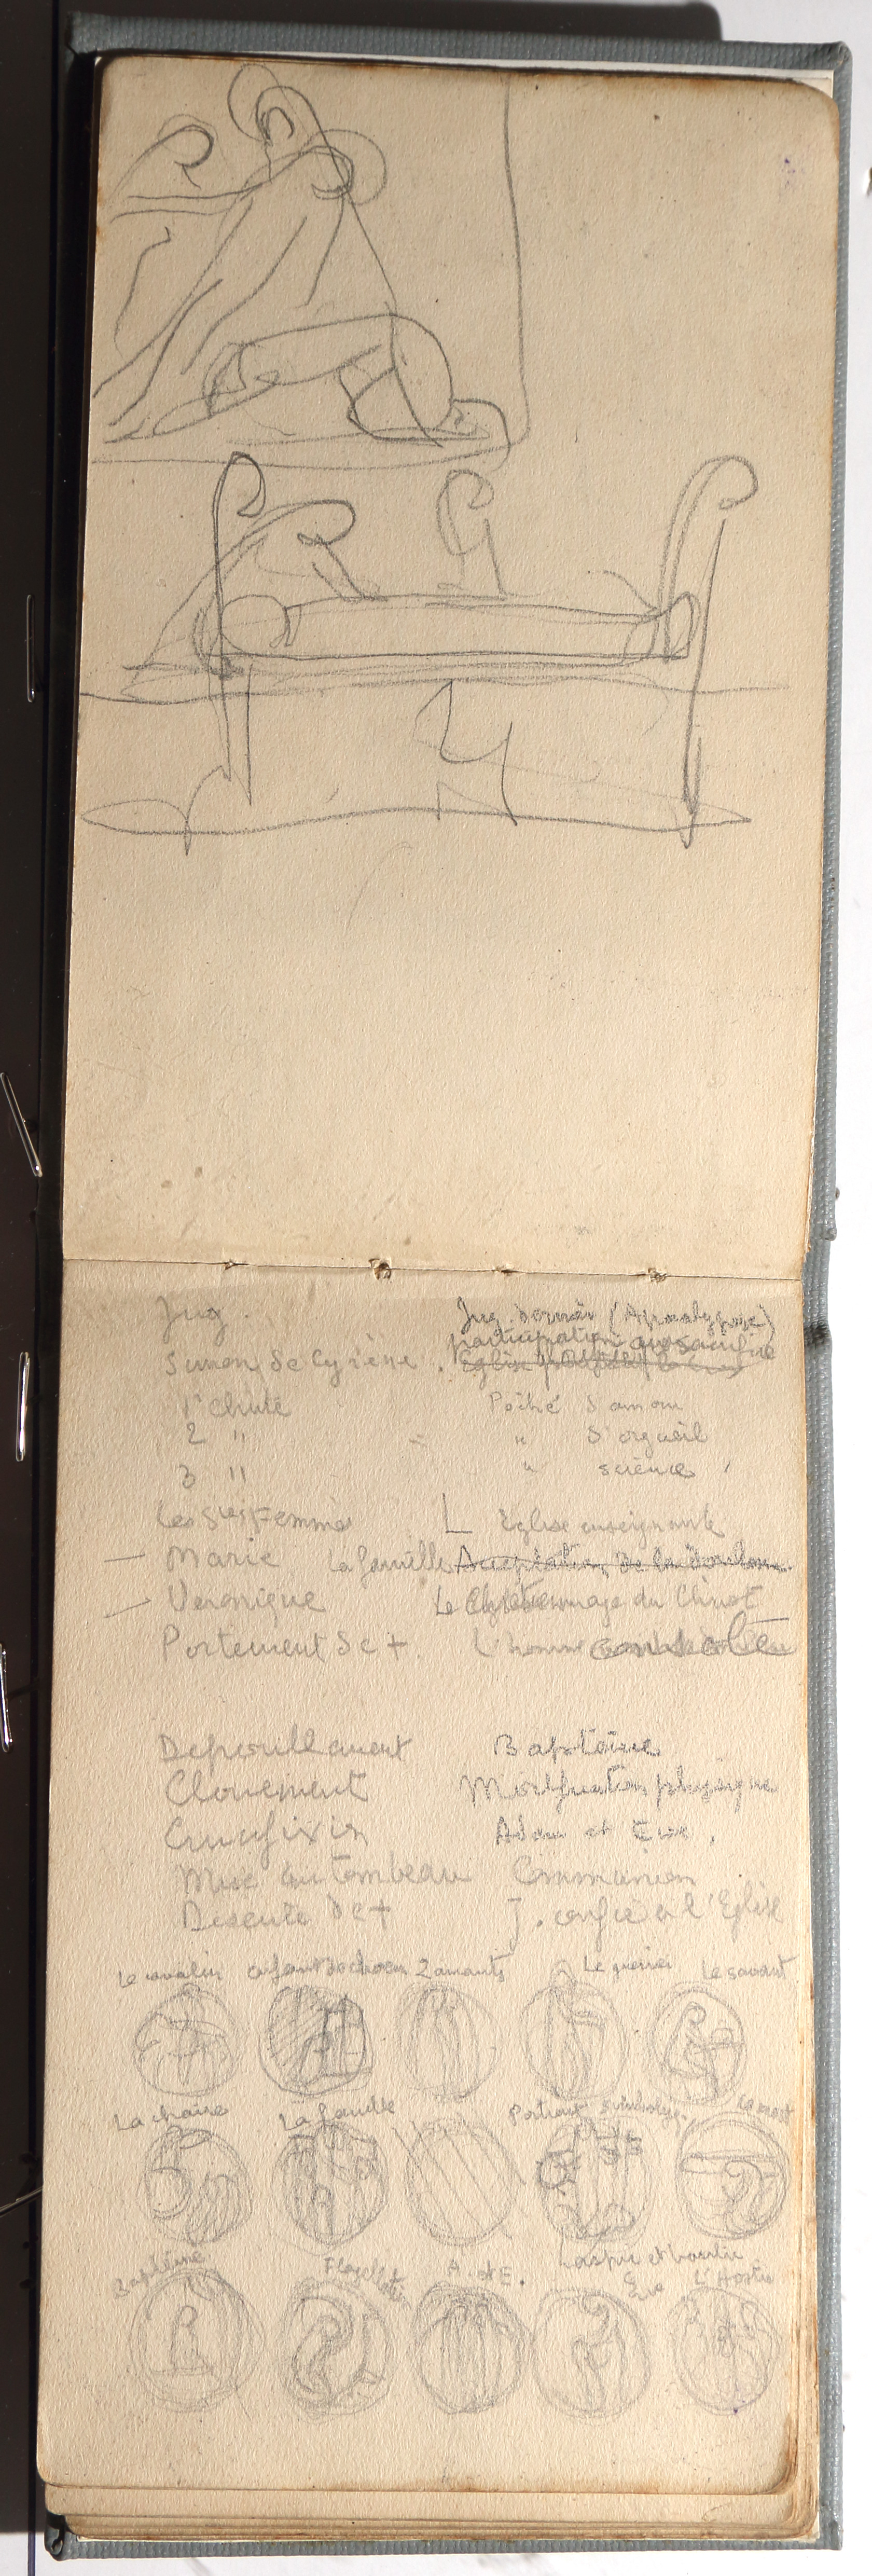 Jug. Jug. dernier (Apocalypse)
participation au sacrifice
Simon de Cyrène. Eglise
1e Chute Péché d'amour
2 " = " d'orgueil
3 " " science
Les Stes Femmes L Eglise enseignante
— Marie La famille Acceptation de la douleur
— Veronique Le du Christ
Portement de + L'homme
Depouillement Baptême
Clouement Mortification physique
Crucifixion Adam et Eve.
Mise au tombeau Communion
Descente de + J. confié à l'Eglise
Le cavalier enfant de choeur 2 amants Le guerrier Le savant
La chaire La famille Portrait symbolique Le mort
Baptême Flagell A. et E. et Eve L'Hostie